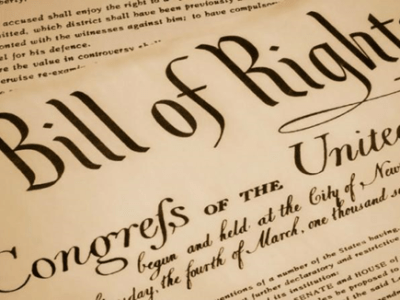 accused shall enjoy the right to a
mitted, which district shall have been previously
onted with the witnesses against him; to have compulso
el for his defence.
re the value in controversy sh
erwise re-exam
Bill of Rights
Congreſs OF THE United
begun and held at the City of New
day, the fourth of March, one thousand s
entions of a number of the States having
further declaratory and restrictive
its institution:
SENATE and HOUSE of
be proposed to
the said